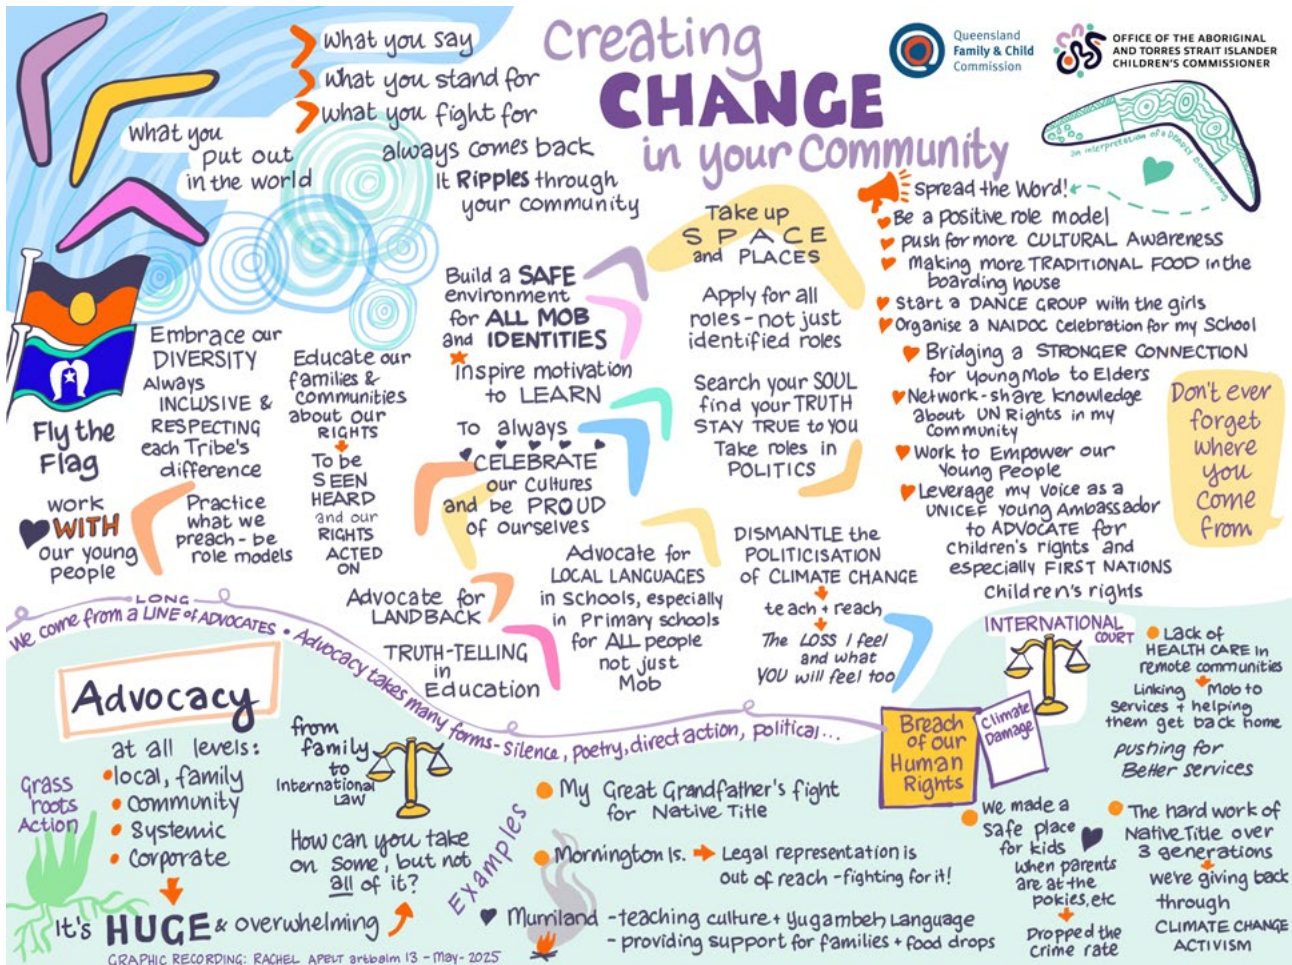 Creating
CHANGE
in your Community
Queensland
Family & Child
Commission
OFFICE OF THE ABORIGINAL
AND TORRES STRAIT ISLANDER
CHILDREN'S COMMISSIONER
an interpretation of a DEADLY Boomerang
What you say
What you stand for
What you fight for
What you
put out
in the world
always comes back
It Ripples through
your community
Fly the
Flag
Embrace our
DIVERSITY
Always
INCLUSIVE &
RESPECTING
each Tribe's
difference
work
WITH
our young
people
Practice
what we
preach - be
role models
Educate our
families &
communities
about our
RIGHTS
To be
SEEN
HEARD
and our
RIGHTS
ACTED
ON
Build a SAFE
environment
for ALL MOB
and IDENTITIES
Inspire motivation
to LEARN
To always
CELEBRATE
our Cultures
and be PROUD
of ourselves
Advocate for
LANDBACK
TRUTH-TELLING
in
Education
Take up
SPACE
and PLACES
Apply for all
roles - not just
identified roles
Search your SOUL
find your TRUTH
STAY TRUE to YOU
Take roles in
POLITICS
Advocate for
LOCAL LANGUAGES
in Schools, especially
in Primary schools
for ALL people
not just
Mob
DISMANTLE the
POLITICISATION
of CLIMATE CHANGE
teach + reach
The LOSS I feel
and what
YOU will feel too
Spread the Word!
Be a positive role model
push for more CULTURAL Awareness
Making more TRADITIONAL FOOD in the
boarding house
Start a DANCE GROUP with the girls
Organise a NAIDOC Celebration for my School
Bridging a STRONGER CONNECTION
for Young Mob to Elders
Network - share knowledge
about UN Rights in my
Community
Work to Empower our
Young People
Leverage my Voice as a
UNICEF Young Ambassador
to ADVOCATE for
Children's rights and
especially FIRST NATIONS
Children's rights
Don't ever
forget
where
you
come
from
LONG
We come from a LINE of ADVOCATES • Advocacy takes many forms - Silence, poetry, direct action, political...
Advocacy
at all levels:
local, family
Community
Systemic
Corporate
Grass
roots
Action
It's HUGE & overwhelming
from
family
to
International
Law
How can you take
on some, but not
all of it?
Examples
My Great Grandfather's fight
for Native Title
Mornington Is.
Legal representation is
out of reach - fighting for it!
Murriland - teaching culture + Yugambeh Language
- providing support for families + food drops
Breach
of our
Human
Rights
Climate
Damage
INTERNATIONAL
COURT
Lack of
HEALTH CARE in
remote communities
Linking Mob to
Services + helping
them get back home
pushing for
Better services
We made a
Safe place
for kids
when parents
are at the
pokies, etc
Dropped the
crime rate
The hard work of
Native Title over
3 generations
we're giving back
through
CLIMATE CHANGE
ACTIVISM
GRAPHIC RECORDING: RACHEL APELT artbalm 13 - May - 2025